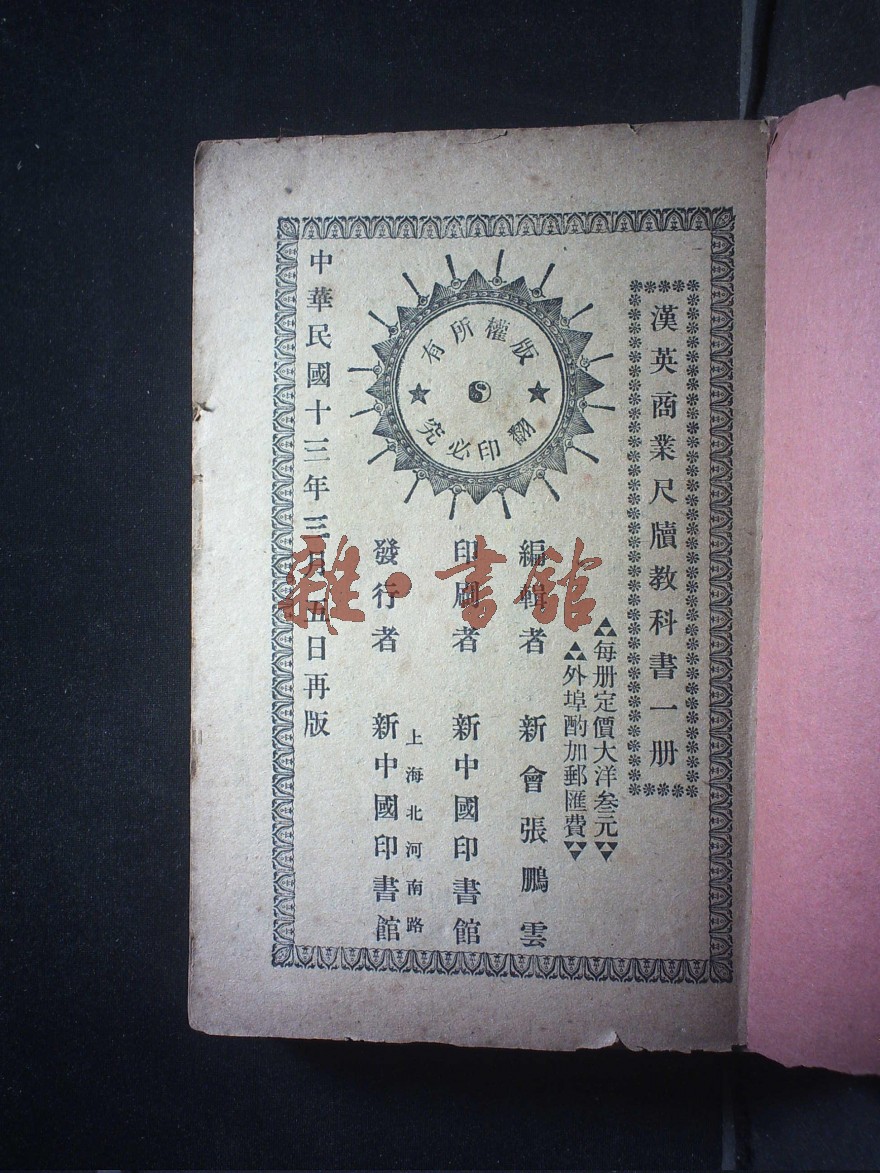 漢英商業尺牘教科書一册
每册定價大洋叄元
外埠酌加郵匯費
版權所有
翻印必究
編輯者 新會張鵬雲
印刷者 新中國印書館
上海北河南路
發行者 新中國印書館
中華民國十三年三月五日再版
雜·書館